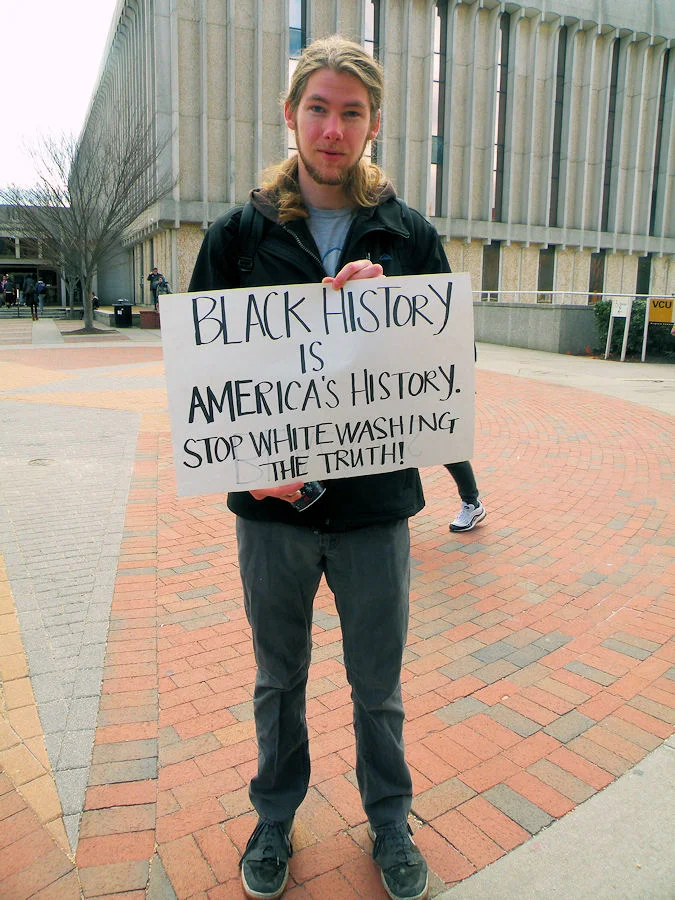 BLACK HISTORY
IS
AMERICA'S HISTORY.
STOP WHITEWASHING
THE TRUTH!
VCU